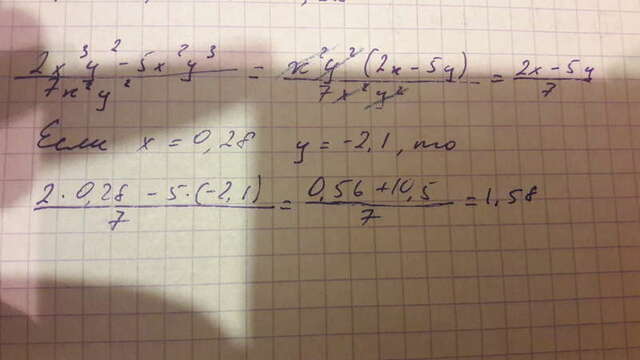 (2x³y² - 5x²y³)/(7x²y²) = (x²y²(2x - 5y))/(7x²y²) = (2x - 5y)/7
Если x = 0,28 y = -2,1, то
(2·0,28 - 5·(-2,1))/7 = (0,56 + 10,5)/7 = 1,58